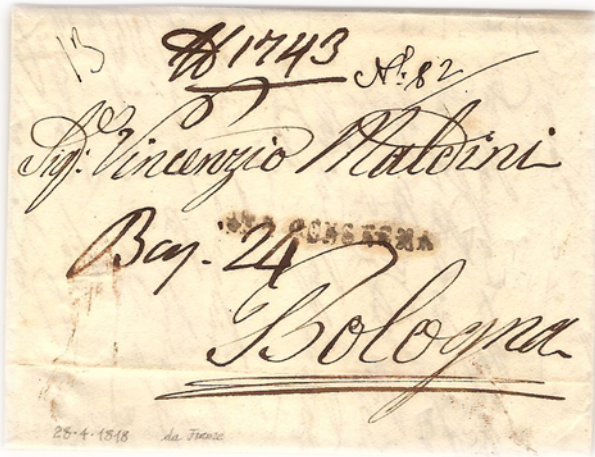 13
№ 1743
N.º 82
Sig.º Vincenzio Maldini
ATA CONSEGNA
Baj. 24
Bologna
28-4-1818 da Firenze